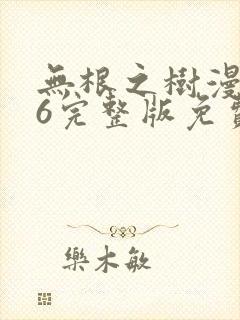 無根之樹漫
6完整版免費
樂木敏